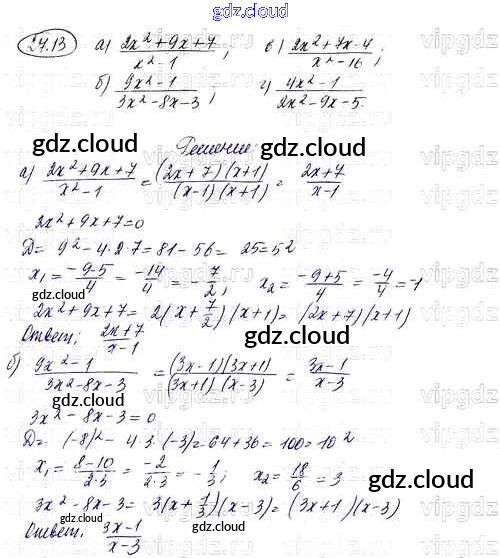 gdz.cloud
24.13 а) (2x²+9x+7)/(x²-1); в) (2x²+7x-4)/(x²-16);
б) (9x²-1)/(3x²-8x-3); г) (4x²-1)/(2x²-9x-5).
Решение:
gdz.cloud gdz.cloud
а) (2x²+9x+7)/(x²-1) = ((2x+7)(x+1))/((x-1)(x+1)) = (2x+7)/(x-1)
2x²+9x+7=0
D= 9²-4·2·7=81-56= 25=5²
x₁= (-9-5)/4 = -14/4 = -7/2; x₂= (-9+5)/4 = -4/4 = -1
gdz.cloud gdz.cloud
2x²+9x+7= 2(x+7/2)(x+1)= (2x+7)(x+1)
Ответ: (2x+7)/(x-1)
gdz.cloud
б) (9x²-1)/(3x²-8x-3) = ((3x-1)(3x+1))/((3x+1)(x-3)) = (3x-1)/(x-3)
gdz.cloud gdz.cloud
3x²-8x-3=0
D= (-8)²- 4·3·(-3)=64+36=100=10²
x₁= (8-10)/(2·3) = -2/(2·3) = -1/3; x₂= 18/6 = 3
gdz.cloud gdz.cloud
3x²-8x-3= 3(x+1/3)(x-3)= (3x+1)(x-3)
Ответ: (3x-1)/(x-3)
gdz.cloud